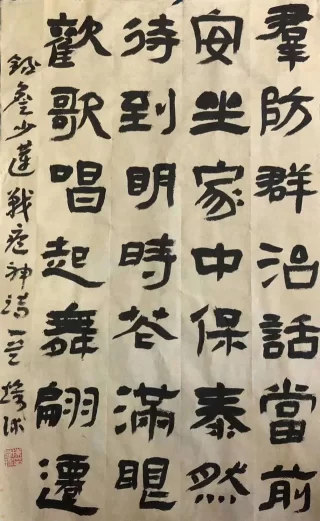 羣防群治話當前
安坐家中保泰然
待到明時花滿眼
歡歌唱起舞翩遷
錄詹少蓮戰疫神詩一首